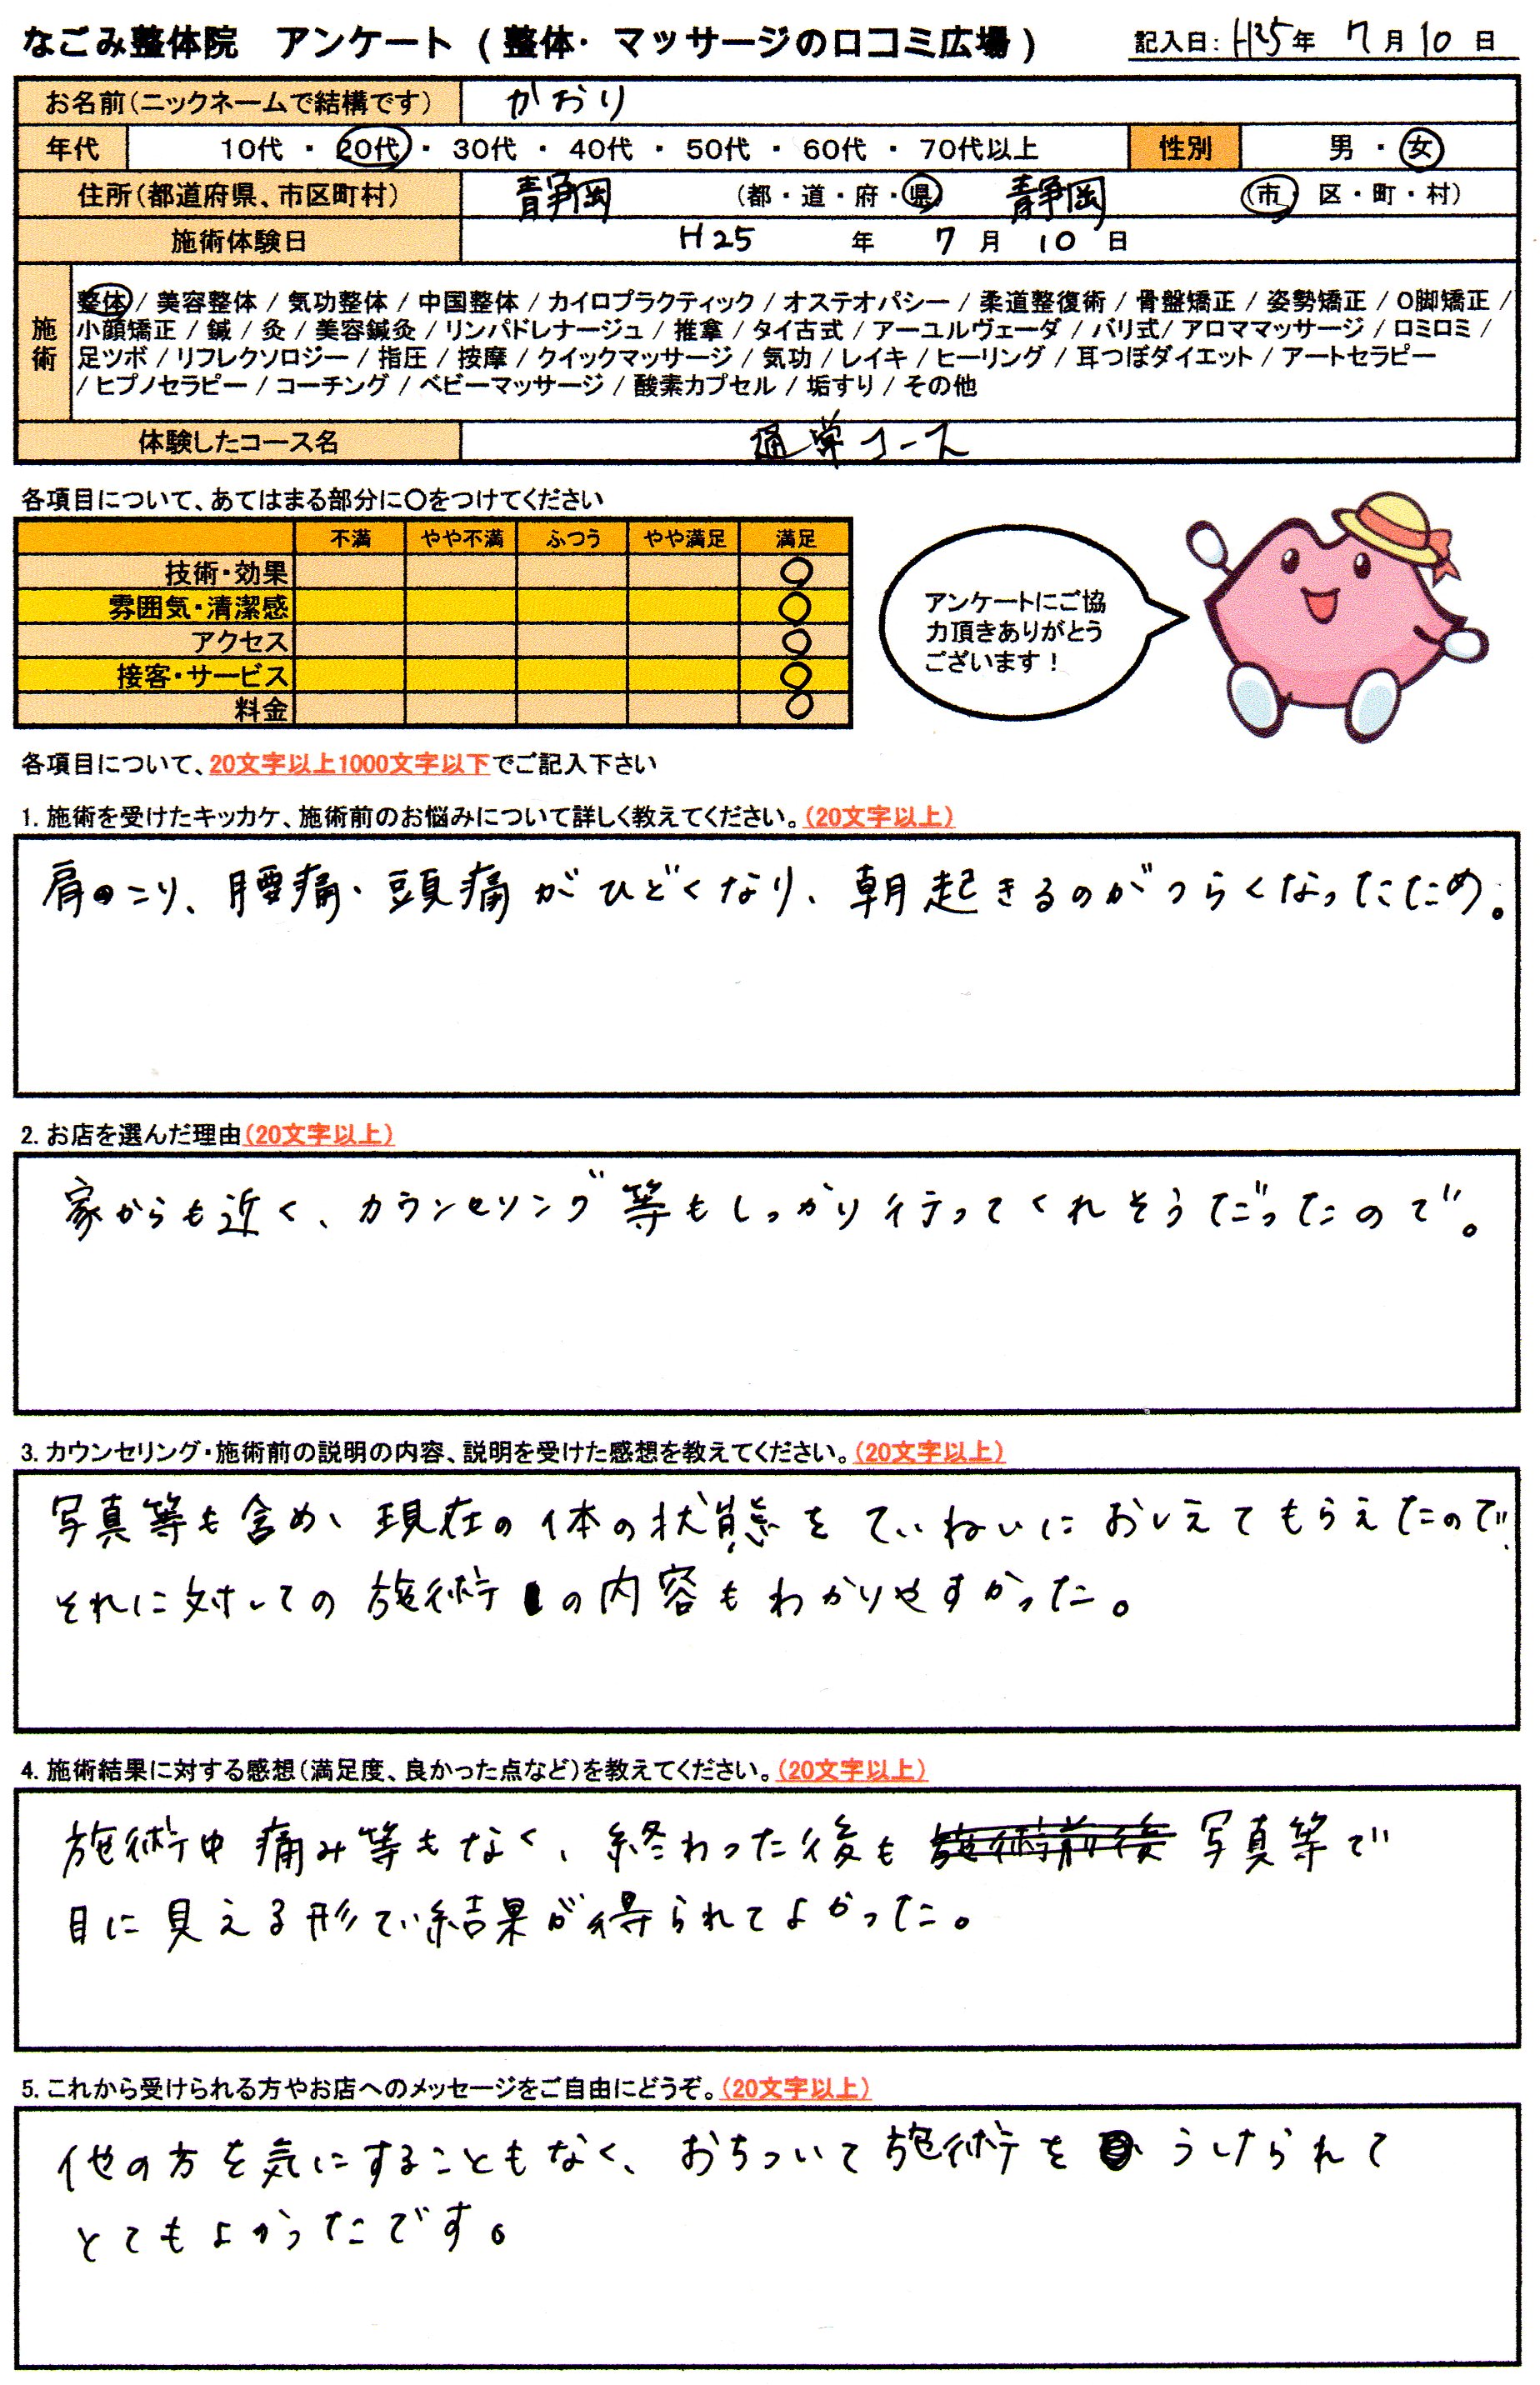 なごみ整体院 アンケート(整体・マッサージの口コミ広場) 記入日:H25年 7月10日
お名前(ニックネームで結構です) かおり
年代 10代・20代・30代・40代・50代・60代・70代以上 性別 男・女
住所(都道府県、市区町村) 静岡 (都・道・府・県) 静岡 (市・区・町・村)
施術体験日 H25 年 7月 10日
施術
整体 / 美容整体 / 気功整体 / 中国整体 / カイロプラクティック / オステオパシー / 柔道整復術 / 骨盤矯正 / 姿勢矯正 / O脚矯正 /
小顔矯正 / 鍼 / 灸 / 美容鍼灸 / リンパドレナージュ / 推拿 / タイ古式 / アーユルヴェーダ / バリ式 / アロママッサージ / ロミロミ /
足ツボ / リフレクソロジー / 指圧 / 按摩 / クイックマッサージ / 気功 / レイキ / ヒーリング / 耳つぼダイエット / アートセラピー
/ ヒプノセラピー / コーチング / ベビーマッサージ / 酸素カプセル / 垢すり / その他
体験したコース名 通常コース
各項目について、あてはまる部分に〇をつけてください
不満 やや不満 ふつう やや満足 満足
技術・効果 〇
雰囲気・清潔感 〇
アクセス 〇
接客・サービス 〇
料金 〇
アンケートにご協
力頂きありがとう
ございます!
各項目について、20文字以上1000文字以下でご記入下さい
1. 施術を受けたキッカケ、施術前のお悩みについて詳しく教えてください。(20文字以上)
肩のこり、腰痛・頭痛がひどくなり、朝起きるのがつらくなったため。
2. お店を選んだ理由(20文字以上)
家からも近く、カウンセリング等もしっかり行ってくれそうだったので。
3. カウンセリング・施術前の説明の内容、説明を受けた感想を教えてください。(20文字以上)
写真等も含め、現在の体の状態をていねいにおしえてもらえたので、
それに対しての施術の内容もわかりやすかった。
4. 施術結果に対する感想(満足度、良かった点など)を教えてください。(20文字以上)
施術中痛み等もなく、終わった後も施術前後写真等で
目に見える形で結果が得られてよかった。
5. これから受けられる方やお店へのメッセージをご自由にどうぞ。(20文字以上)
他の方を気にすることもなく、おちついて施術をうけられて
とてもよかったです。